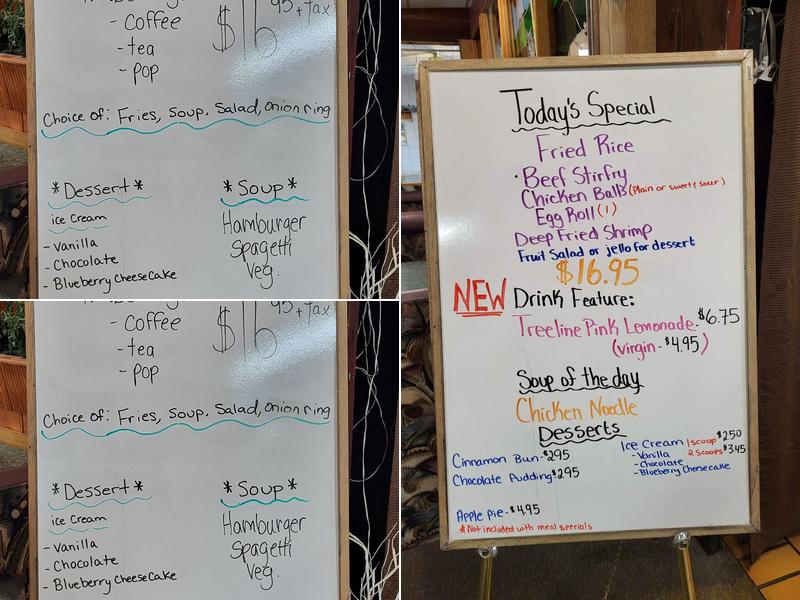 - Coffee
- tea
- pop
$16 95 + tax
Choice of: Fries, Soup, Salad, onion ring
*Dessert*
ice Cream
- Vanilla
- Chocolate
- Blueberry CheeseCake
*Soup*
Hamburger
Spagetti
Veg.
- Coffee
- tea
- pop
$16 95 + tax
Choice of: Fries, Soup, Salad, onion ring
*Dessert*
ice Cream
- Vanilla
- Chocolate
- Blueberry CheeseCake
*Soup*
Hamburger
Spagetti
Veg.
Today's Special
Fried Rice
· Beef Stirfry
Chicken Balls (Plain or sweet & sour)
Egg Roll (1)
Deep Fried Shrimp
Fruit Salad or jello for dessert
$16.95
NEW Drink Feature:
Treeline Pink Lemonade - $6.75
(virgin - $4.95)
Soup of the day
Chicken Noodle
Desserts
Cinnamon Bun - $295
Chocolate Pudding - $295
Apple Pie - $4.95
Ice Cream 1 scoop $250
2 scoops $3.45
- Vanilla
- Chocolate
- Blueberry Cheesecake
* Not included with meal specials